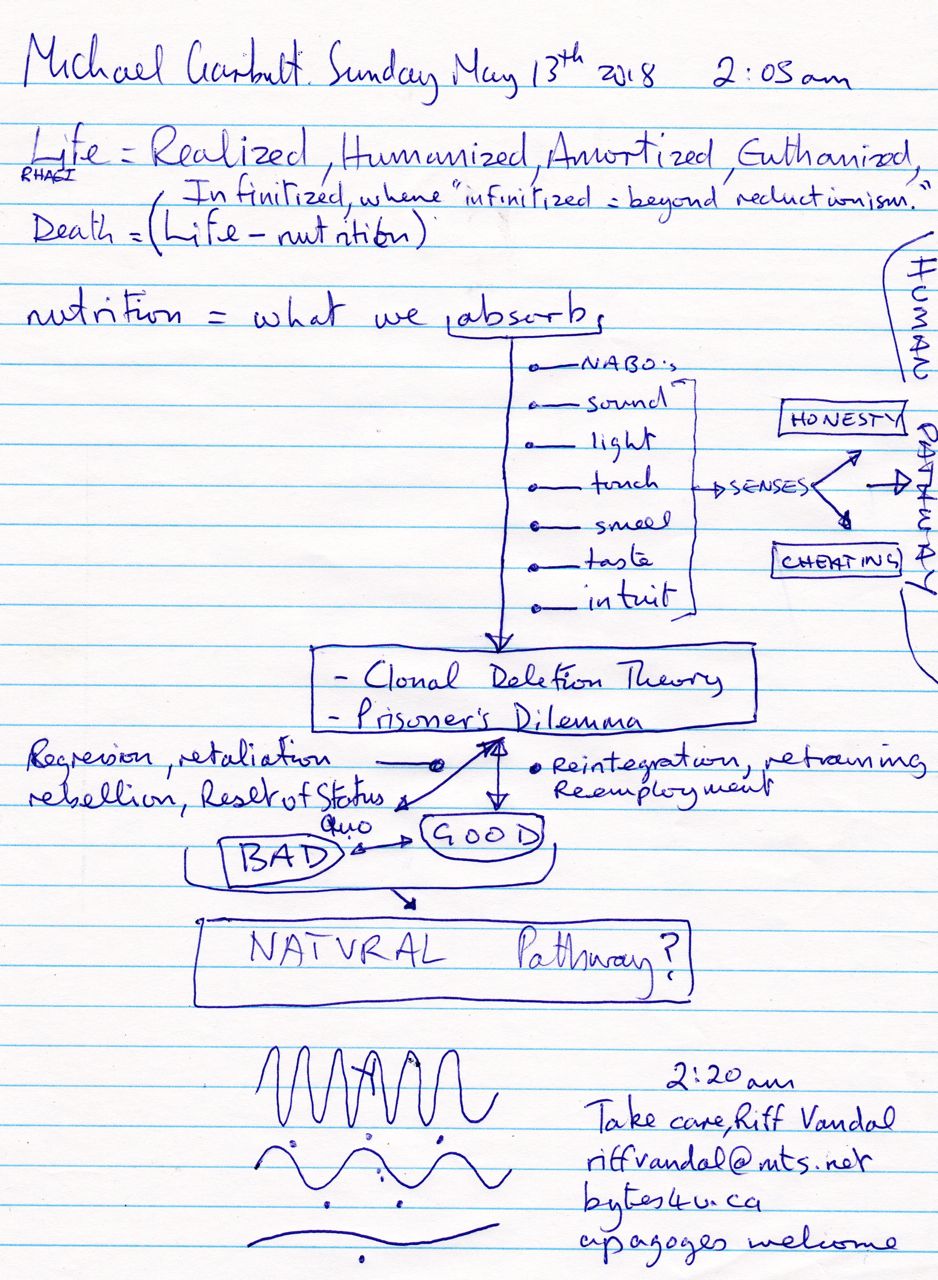 Michael Garbutt. Sunday May 13th 2018 2:05am
Life = Realized, Humanized, Amortized, Euthanized,
RHAEI
Infinitized, where "infinitized = beyond reductionism."
Death = (Life - nutrition)
nutrition = what we absorb,
NABO's
sound
light
touch
smell
taste
intuit
SENSES
HONESTY
CHEATING
HUMAN PATHWAY
- Clonal Deletion Theory
- Prisoner's Dilemma
Regression, retaliation
rebellion, Reset of Status
Quo
Reintegration, retraining
Reemployment
BAD
GOOD
NATURAL Pathway?
2:20am
Take care, Riff Vandal
riffvandal@mts.net
bytes4u.ca
apagoges welcome